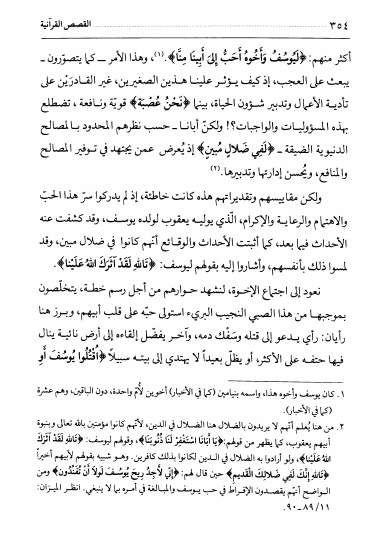 ٣٥٤ القصص القرآنية
أكثر منهم: ﴿لَيُوسُفُ وَأَخُوهُ أَحَبُّ إِلَىٰ أَبِينَا مِنَّا﴾.(١)، وهذا الأمر ـ كما يتصوّرون ـ
يبعث على العجب، إذ كيف يؤثر علينا هذين الصغيرين، غير القادرَيْن على
تأدية الأعمال وتدبير شؤون الحياة، بينما ﴿نَحْنُ عُصْبَةٌ﴾ قويّة ونافعة، تضطلع
بهذه المسؤوليات والواجبات؟! ولكنّ أبانا ـ حسب نظرهم المحدود بالمصالح
الدنيوية الضيقة ـ ﴿لَفِي ضَلالٍ مُبِينٍ﴾ إذ يُعرض عمن يجتهد في توفير المصالح
والمنافع، ويُحسن إدارتها وتدبيرها.(٢)
ولكن مقاييسهم وتقديراتهم هذه كانت خاطئة، إذ لم يدركوا سرّ هذا الحبّ
والاهتمام والرعاية والإكرام، الّذي يوليه يعقوب لولده يوسف، وقد كشفت عنه
الأحداث فيما بعد، كما أثبتت الأحداث والوقائع أنّهم كانوا في ضلال مبين، وقد
لمسوا ذلك بأنفسهم، وأشاروا إليه بقولهم ليوسف: ﴿تَاللهِ لَقَدْ آثَرَكَ اللهُ عَلَيْنَا﴾.
نعود إلى اجتماع الإخوة، لنشهد حوارهم من أجل رسم خطة، يتخلّصون
بموجبها من هذا الصبي النجيب البريء استولى حبّه على قلب أبيهم، وبرز هنا
رأيان: رأي يدعو إلى قتله وسَفْك دمه، وآخر يفضّل إلقاءه إلى أرض نائية ينال
فيها حتفه على الأكثر، أو يظلّ بعيداً لا يهتدي إلى بيته سبيلاً ﴿اقْتُلُوا يُوسُفَ أَوِ
١ . كان يوسف وأخوه هذا، واسمه بنيامين (كما في الأخبار) أخوين لأُمّ واحدة، دون الباقين، وهم عشرة
(كما في الأخبار).
٢ . من هنا يُعلم أنّهم لا يريدون بالضلال هنا الضلال في الدين، لأنّهم كانوا مؤمنين بالله تعالى وبنبوة
أبيهم يعقوب، كما يظهر من قولهم: ﴿يَا أَبَانَا اسْتَغْفِرْ لَنَا ذُنُوبَنَا﴾، وقولهم ليوسف: ﴿تَاللهِ لَقَدْ آثَرَكَ
اللهُ عَلَيْنَا﴾، ولو أرادوا به الضلال في الدين لكانوا بذلك كافرين. وهو شبيه بقولهم لأبيهم أخيراً
﴿تَاللهِ إِنَّكَ لَفِي ضَلالِكَ الْقَدِيمِ﴾ حين قال لهم: ﴿إِنِّي لَأَجِدُ رِيحَ يُوسُفَ لَوْلا أَنْ تُفَنِّدُونِ﴾ ومن
الواضح أنّهم يقصدون الإفراط في حب يوسف والمبالغة في أمره بما لا ينبغي. انظر الميزان:
١١/ ٨٩ - ٩٠.